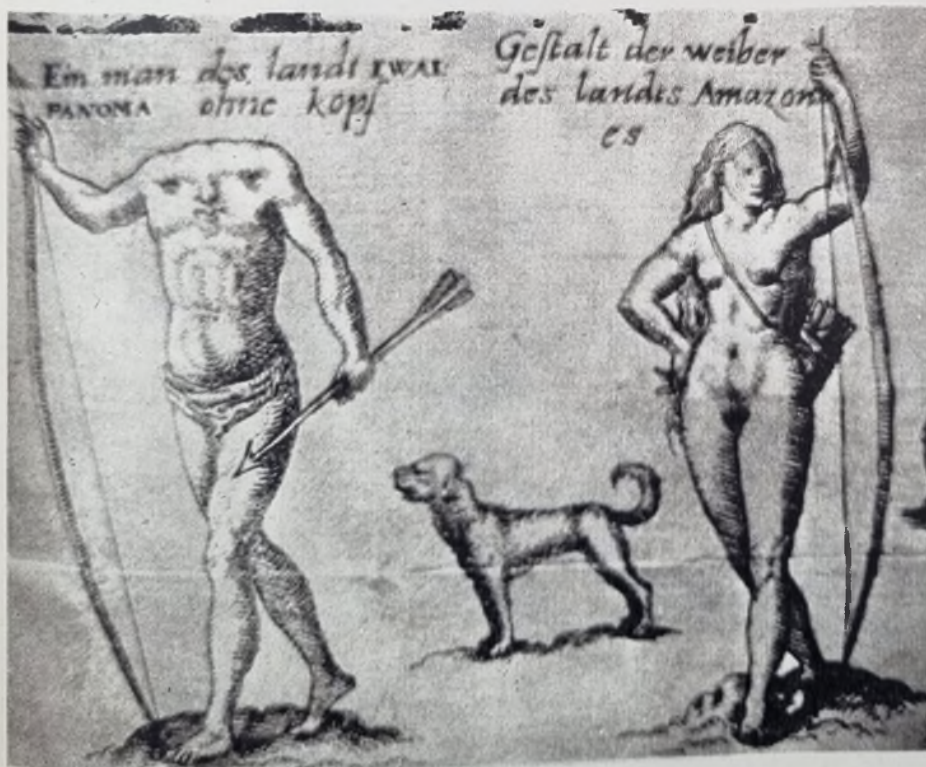 Ein man des landt IWAI
PANOMA ohne kopf
Geſtalt der weiber
des landts Amazon
es